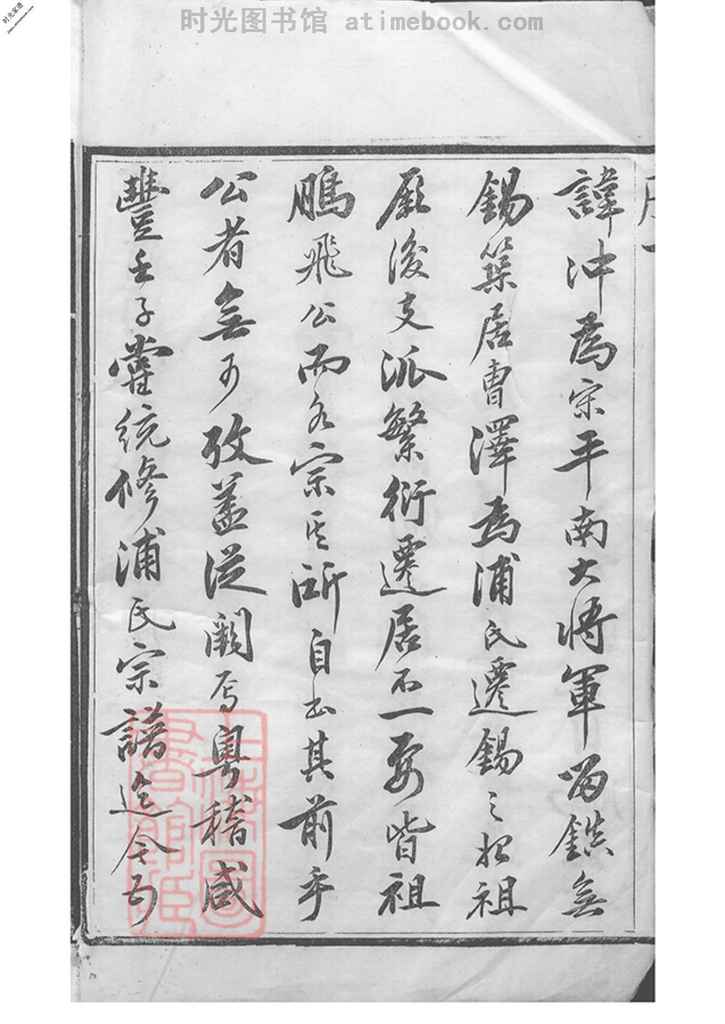 时光图书馆 atimebook.com
諱沖為宋平南大將軍留鎮無
錫築居曹澤為浦氏遷錫之始祖
厥後支派繁衍遷居不一要皆祖
鵬飛公而各宗其所自出其前乎
公者無可攷蓋從闕焉粤稽咸
豐壬子嘗統修浦氏宗譜迄今